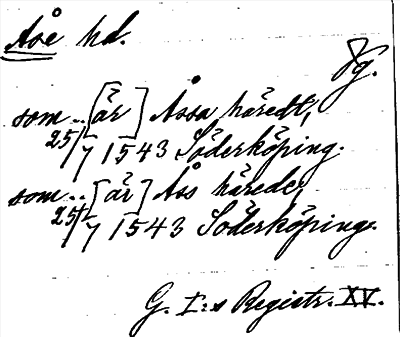 Åse hd.
Ög.
som .. [är] Åssa häredt,
25/7 1543 Söderköping.
som .. [är] Åås härede,
25/7 1543 Söderköping.
G. I:s Registr. XV.